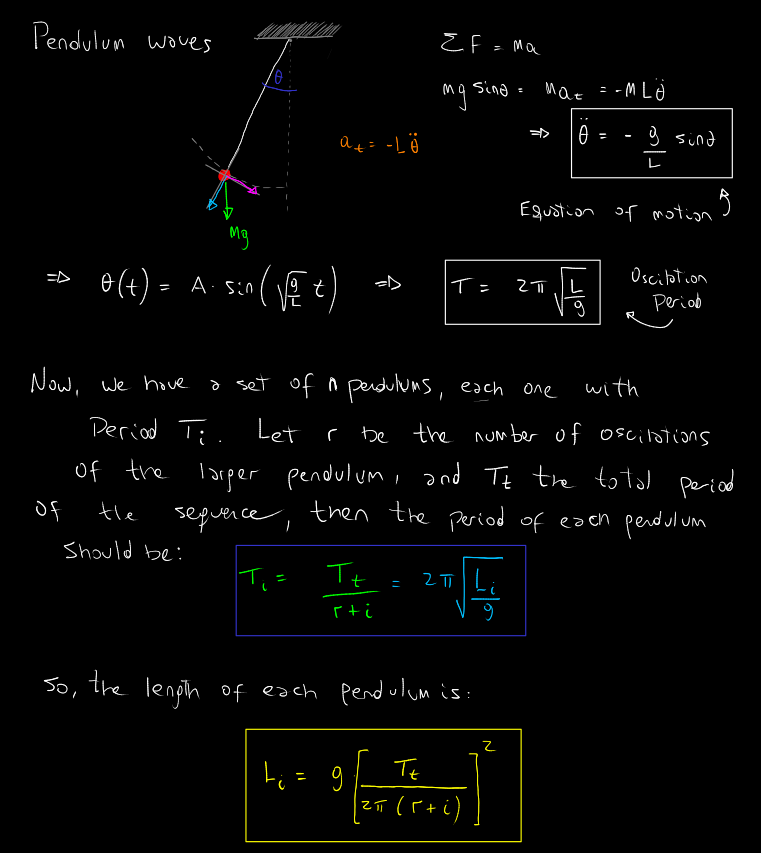 Pendulum waves
θ
a_t = -Lθ̈
Mg
ΣF = ma
mg sinθ = ma_t = -MLθ̈
⇒ θ̈ = - g/L sinθ
Equation of motion
⇒ θ(t) = A · sin(√(g/L) t) ⇒ T = 2π √(L/g)
Oscilation
Period
Now, we have a set of n pendulums, each one with
Period Tᵢ. Let r be the number of oscilations
of the larger pendulum, and T_t the total period
of the sequence, then the period of each pendulum
should be:
Tᵢ = T_t/(r+i) = 2π √(Lᵢ/g)
So, the length of each pendulum is:
Lᵢ = g [T_t/(2π(r+i))]²